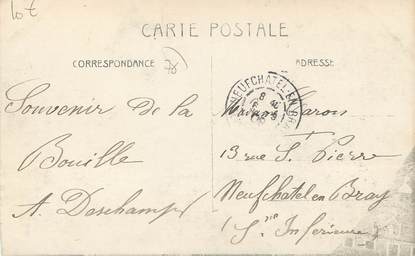 10€
CARTE POSTALE
CORRESPONDANCE
76
ADRESSE
NEUFCHATEL-EN-BRAY
Souvenir de la
Bouille
A. Deschamps
Maison Caron
13 rue St. Pierre
Neufchatel en Bray
(Sne Inferieure)